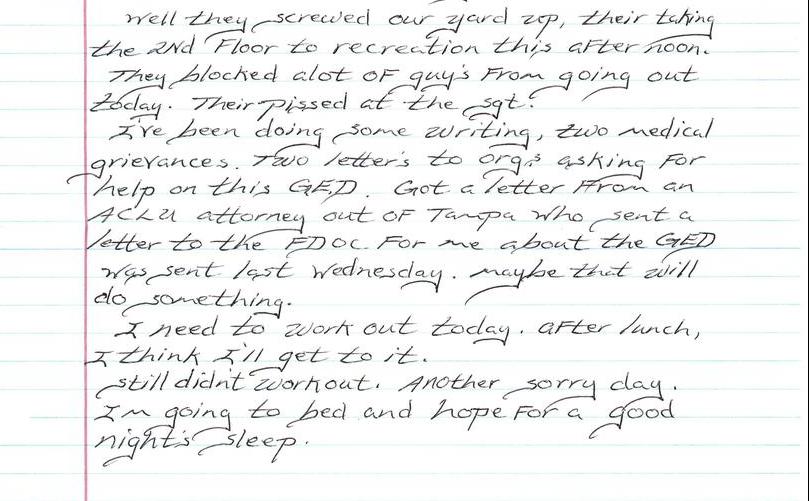 Well they screwed our yard up, their taking
the 2Nd Floor to recreation this afternoon.
They blocked alot OF guy's From going out
today. Their pissed at the sgt.
I've been doing some writing, two medical
grievances. Two letter's to org's asking For
help on this GED. Got a letter From an
ACLU attorney out OF Tampa who sent a
letter to the FDOC. For me about the GED
was sent last Wednesday. maybe that will
do something.
I need to work out today. after lunch,
I think I'll get to it.
still didn't workout. Another sorry day.
I'm going to bed and hope For a good
night's sleep.